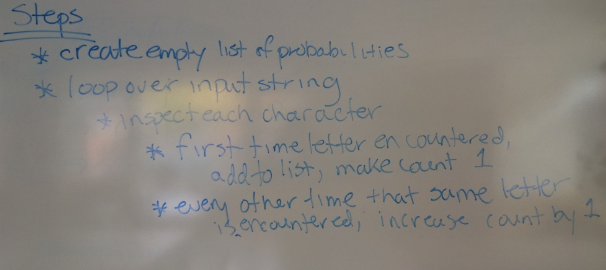 Steps
* create empty list of probabilities
* loop over input string
* inspect each character
* first time letter encountered,
add to list, make count 1
* every other time that same letter
is encountered, increase count by 1